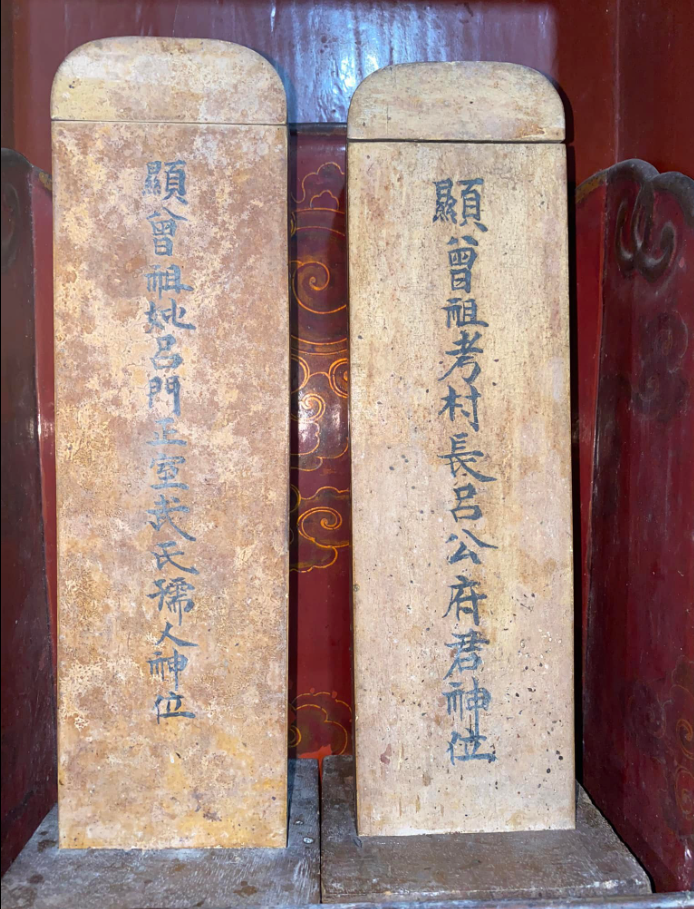 顯曾祖考村長呂公府君神位
顯曾祖妣呂門正室武氏孺人神位